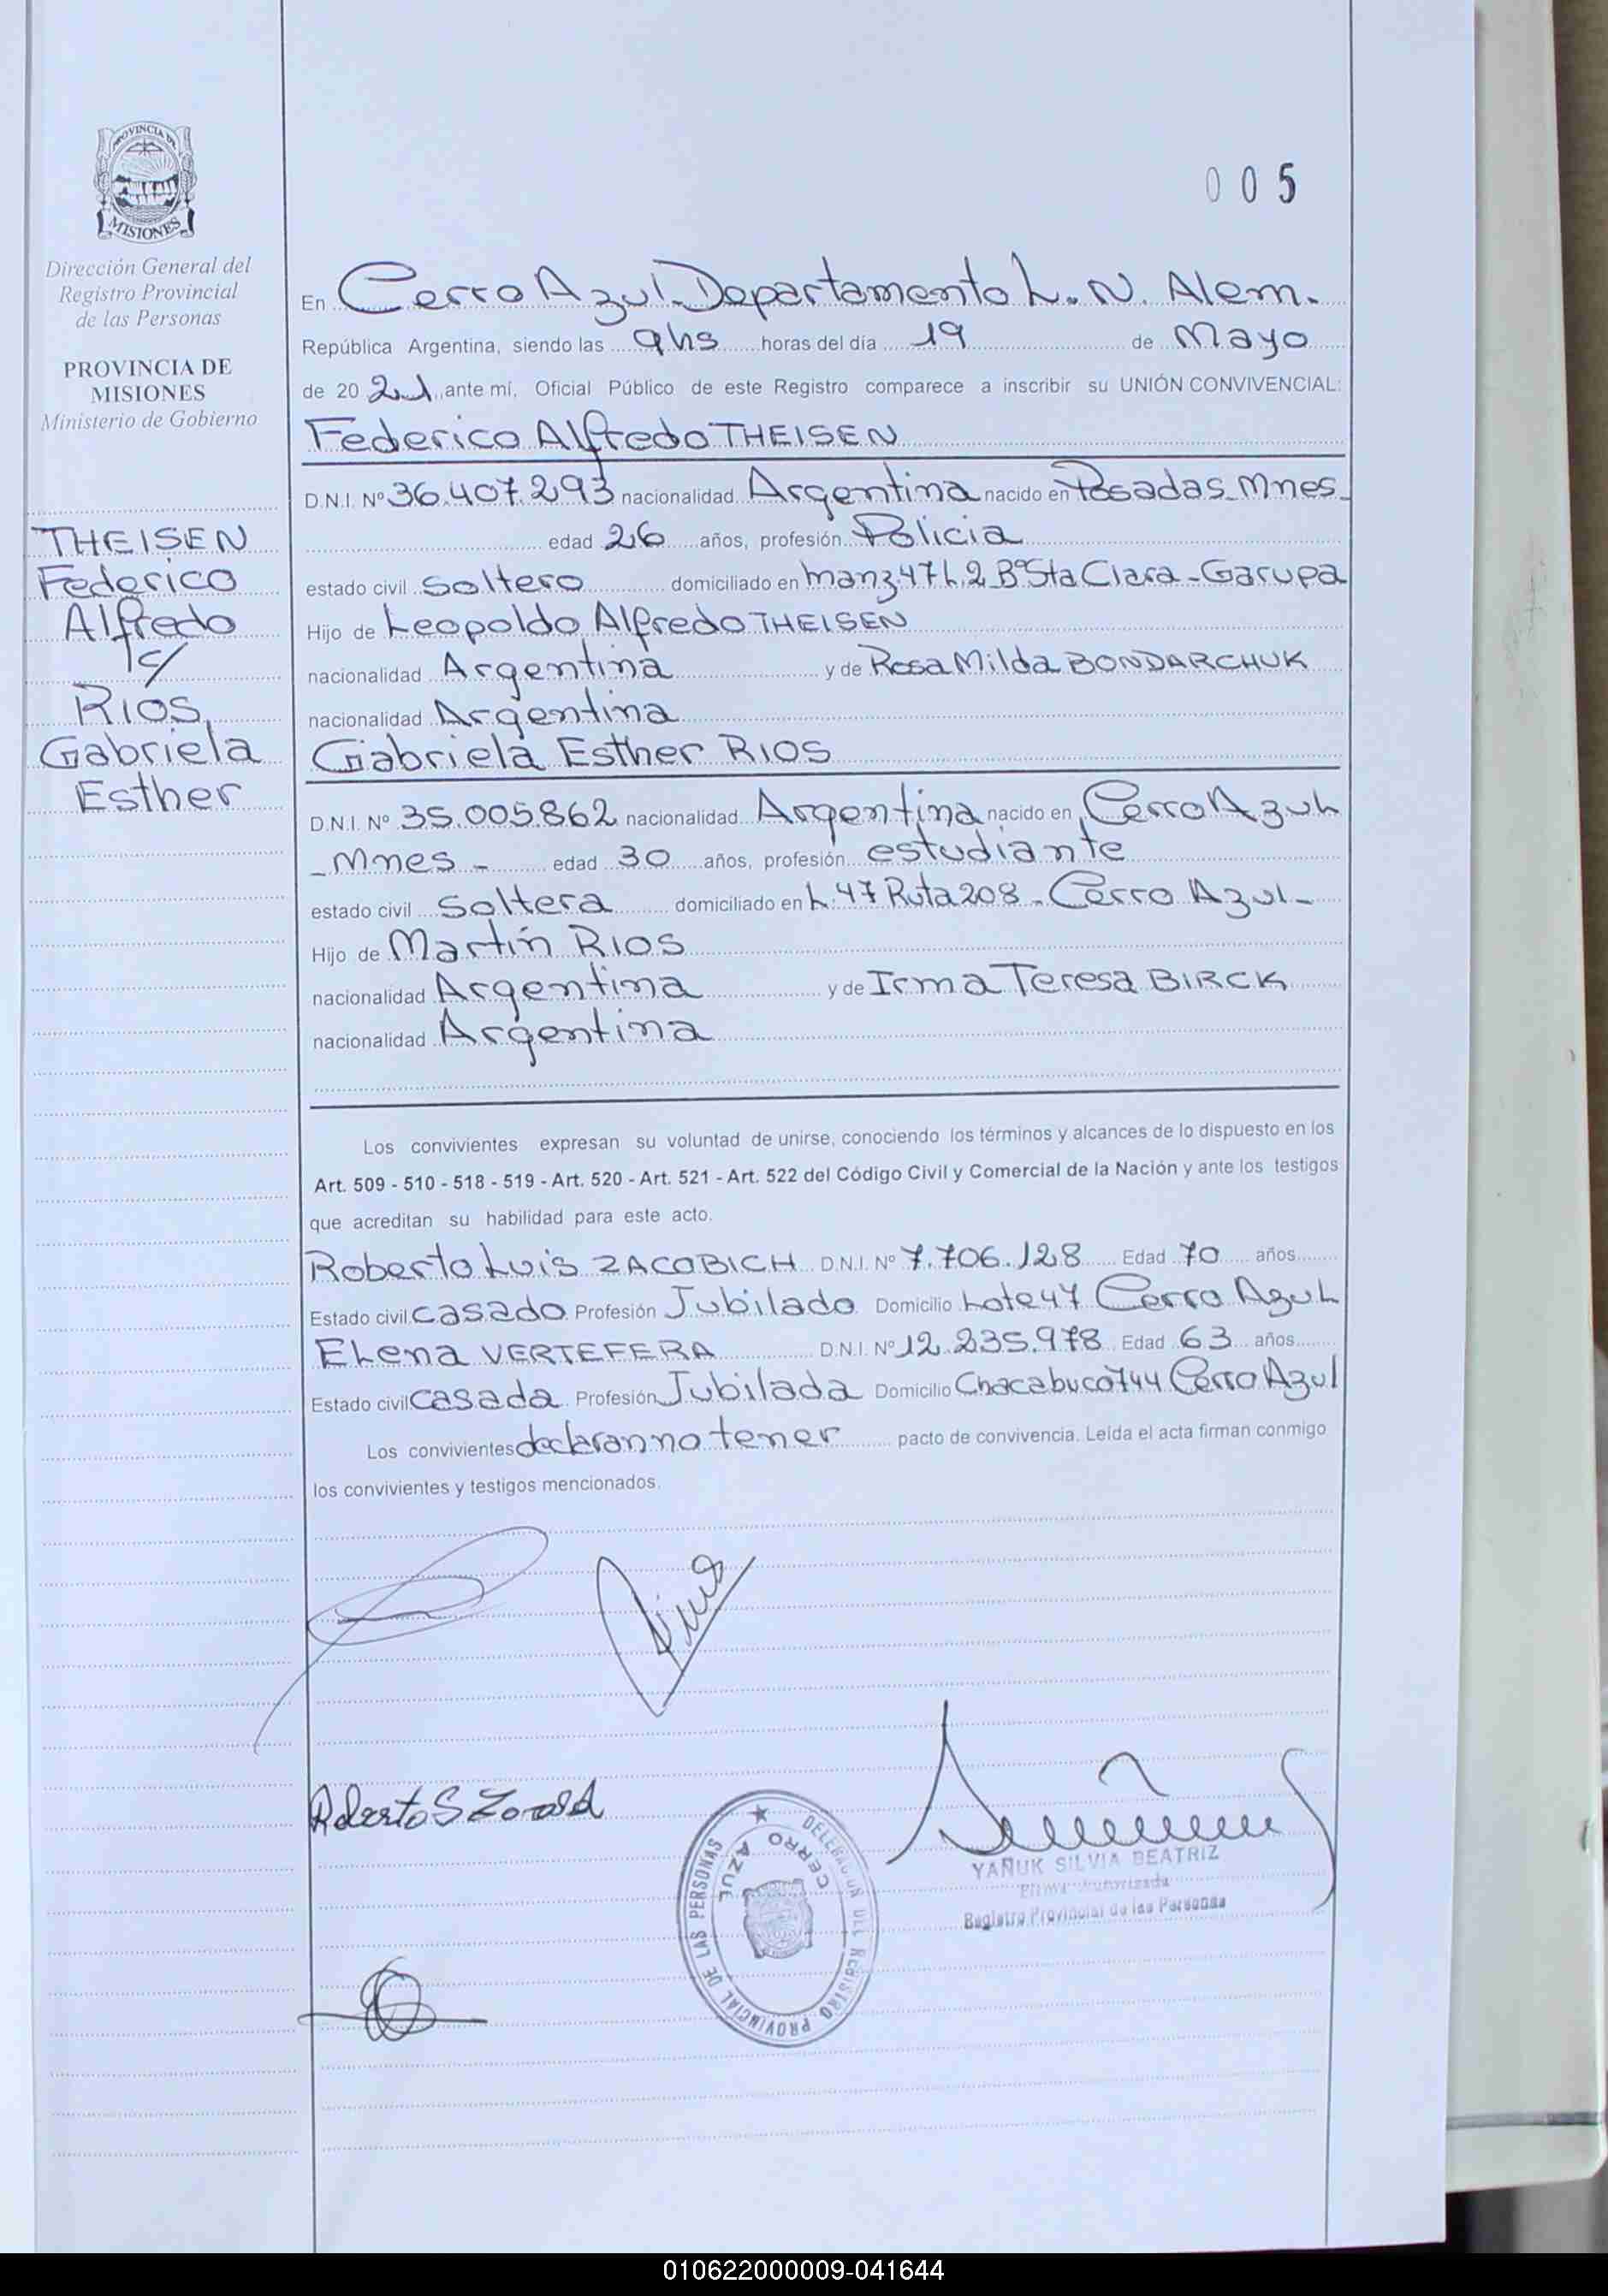 PROVINCIA DE
MISIONES
Dirección General del
Registro Provincial
de las Personas
PROVINCIA DE
MISIONES
Ministerio de Gobierno
THEISEN
Federico
Alfredo
c/
RIOS,
Gabriela
Esther
005
En Cerro Azul - Departamento L. N. Alem.
República Argentina, siendo las 9hs horas del día 19 de Mayo
de 20 21 ante mí, Oficial Público de este Registro comparece a inscribir su UNIÓN CONVIVENCIAL:
Federico Alfredo THEISEN
D.N.I. Nº 36.407.293 nacionalidad Argentina nacido en Posadas - Mnes -
edad 26 años, profesión Policia
estado civil soltero domiciliado en manz.47 L.2 Bº Sta Clara - Garupa
Hijo de Leopoldo Alfredo THEISEN
nacionalidad Argentina y de Rosa Milda BONDARCHUK
nacionalidad Argentina
Gabriela Esther RIOS
D.N.I. Nº 35.005.862 nacionalidad Argentina nacido en Cerro Azul
- Mnes - edad 30 años, profesión estudiante
estado civil soltera domiciliado en L.47 Ruta 208 - Cerro Azul -
Hijo de Martín RIOS
nacionalidad Argentina y de Irma Teresa BIRCK
nacionalidad Argentina
Los convivientes expresan su voluntad de unirse, conociendo los términos y alcances de lo dispuesto en los
Art. 509 - 510 - 518 - 519 - Art. 520 - Art. 521 - Art. 522 del Código Civil y Comercial de la Nación y ante los testigos
que acreditan su habilidad para este acto.
Roberto Luis ZACOBICH D.N.I. Nº 7.706.128 Edad 70 años
Estado civil casado Profesión Jubilado Domicilio Lote 47 Cerro Azul
Elena VERTEFERA D.N.I. Nº 12.235.978 Edad 63 años
Estado civil casada Profesión Jubilada Domicilio Chacabuco 744 Cerro Azul
Los convivientes declaran no tener pacto de convivencia. Leída el acta firman conmigo
los convivientes y testigos mencionados.
DELEGACIÓN DEL REGISTRO PROVINCIAL DE LAS PERSONAS
CERRO AZUL
YAÑUK SILVIA BEATRIZ
Firma Autorizada
Registro Provincial de las Personas
010622000009-041644